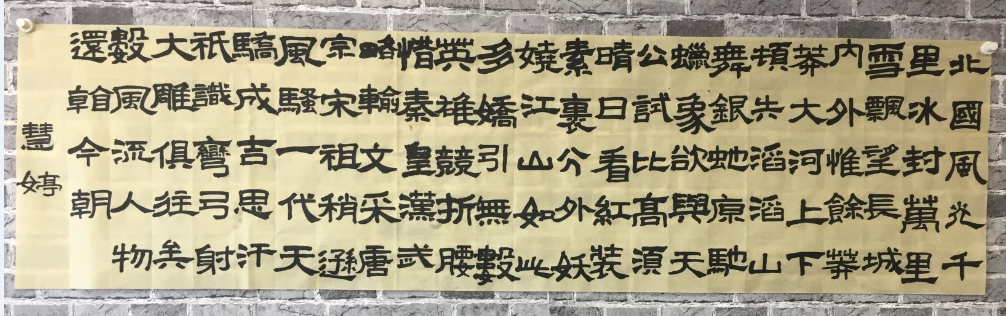 北國風光千
里冰封萬里
雪飄望長城
內外惟餘莽
莽大河上下
頓失滔滔山
舞銀虵原馳
蠟象欲與天
公試比高須
晴日看紅裝
素裹分外妖
嬈江山如此
多嬌引無數
英雄競折腰
惜秦皇漢武
略輸文采唐
宗宋祖稍遜
風騷一代天
驕成吉思汗
祇識彎弓射
大雕俱往矣
數風流人物
還看今朝
慧婷